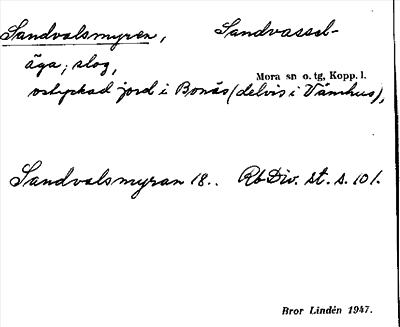 Sandvalsmyren, Sandvassel-
äga; slog,
Mora sn o. tg, Kopp. l.
oslyckad jord i Bonäs (delvis i Våmhus),
Sandvalsmyran 18.. RbDiv. st. s. 101.
Bror Lindén 1947.